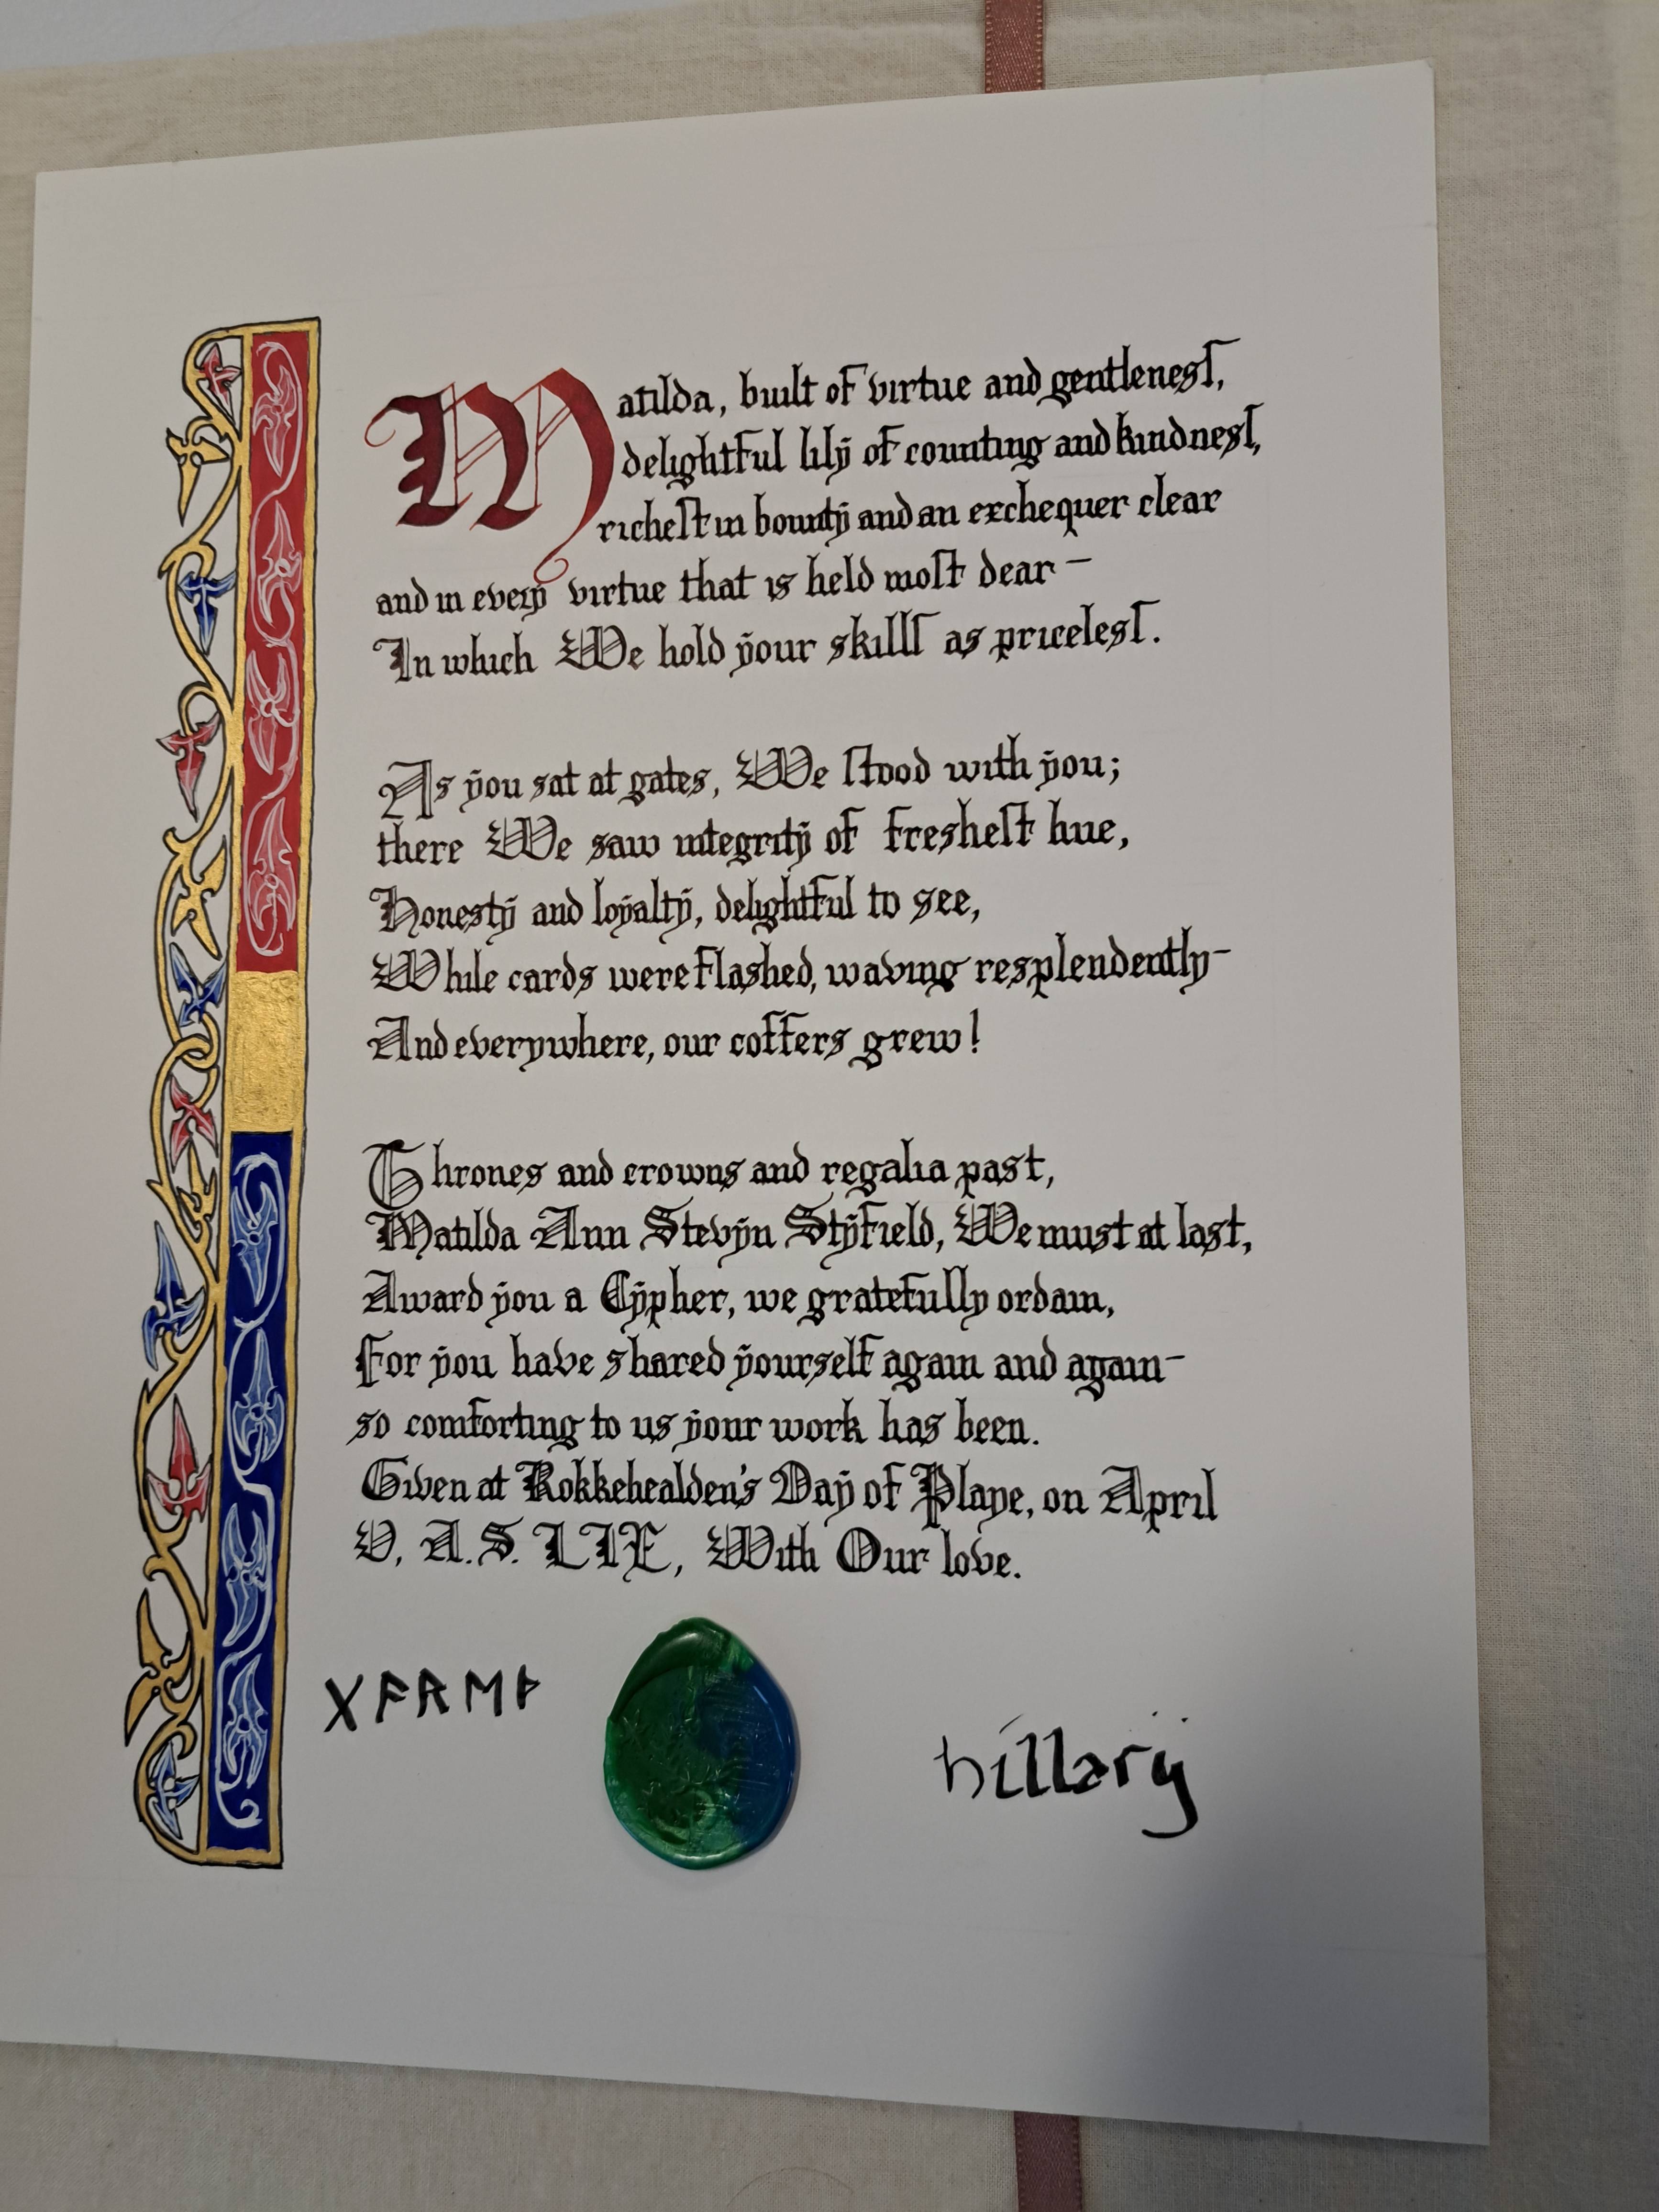 Matilda, built of virtue and gentlenesſ,
delightful lilÿ of counting and kindnesſ,
richeſt in bountÿ and an exchequer clear
and in everÿ virtue that is held moſt dear –
In which We hold ÿour skillſ as pricelesſ.
As ÿou sat at gates, We ſtood with ÿou;
there We saw integritÿ of freſheſt hue,
Honestÿ and loÿaltÿ, delightful to see,
While cards were flashed, waving resplendently –
And everywhere, our coffers grew!
Thrones and crowns and regalia past,
Matilda Ann Stevÿn Stÿfield, We must at last,
Award ÿou a Cÿpher, we gratefully ordain,
For ÿou have shared ÿourself again and again –
so comforting to us ÿour work has been.
Given at Rokkehealden's Daÿ of Playe, on April
V, A.S. LIX, With Our love.
ᚷᚨᚱᛖᚦ
hillarÿ